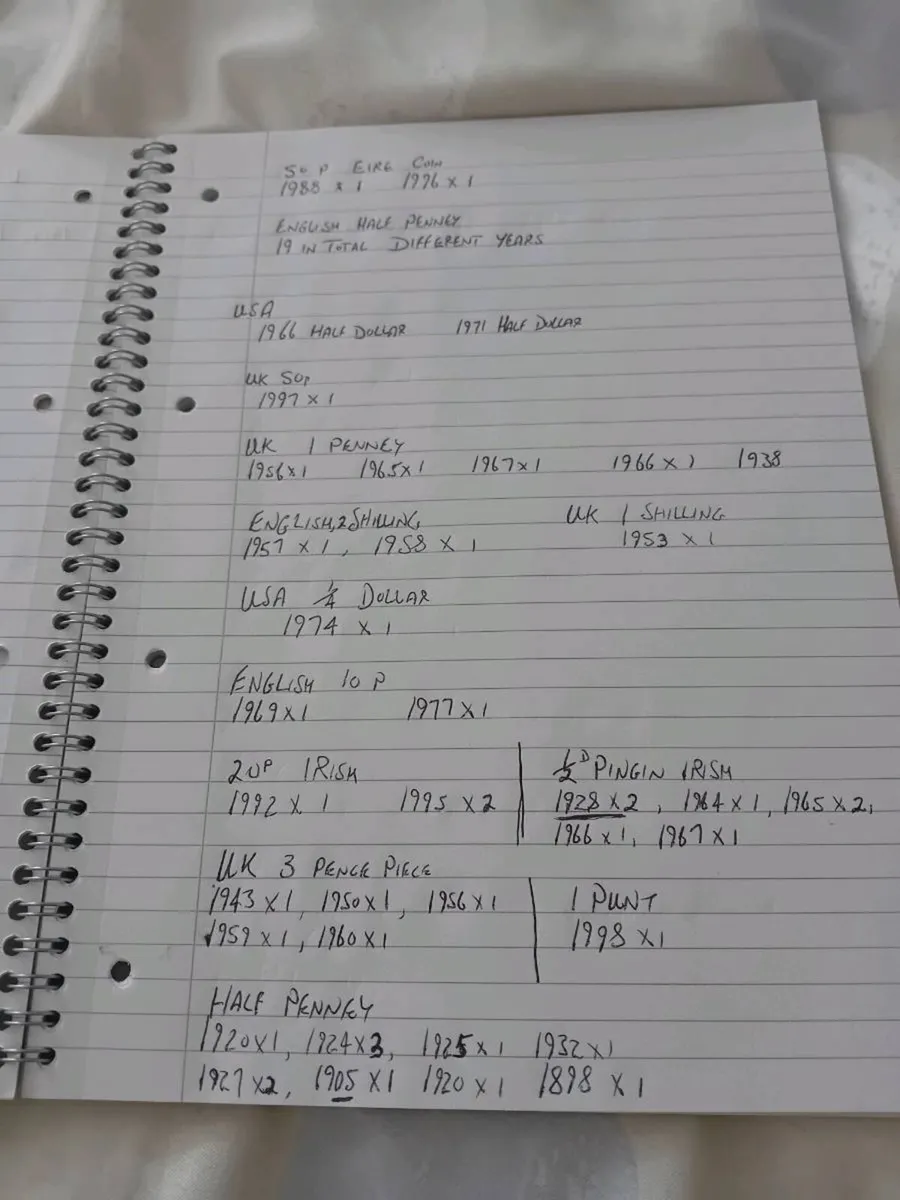 50 P EIRE COIN
1988 x 1 1996 x 1
ENGLISH HALF PENNEY
19 IN TOTAL DIFFERENT YEARS
USA
1966 HALF DOLLAR 1971 HALF DOLLAR
UK 50P
1997 x 1
UK 1 PENNEY
1956 x 1 1965 x 1 1967 x 1 1966 x 1 1938
ENGLISH, 2 SHILLING, UK 1 SHILLING
1957 x 1, 1958 x 1 1953 x 1
USA 1/4 DOLLAR
1974 x 1
ENGLISH 10 P
1969 x 1 1977 x 1
20P IRISH
1992 x 1 1995 x 2
1/2 D PINGIN IRISH
1928 x 2, 1964 x 1, 1965 x 2,
1966 x 1, 1967 x 1
UK 3 PENCE PIECE
1943 x 1, 1950 x 1, 1956 x 1
1959 x 1, 1960 x 1
1 PUNT
1998 x 1
HALF PENNEY
1920 x 1, 1924 x 3, 1925 x 1 1932 x 1
1927 x 2, 1905 x 1 1920 x 1 1898 x 1